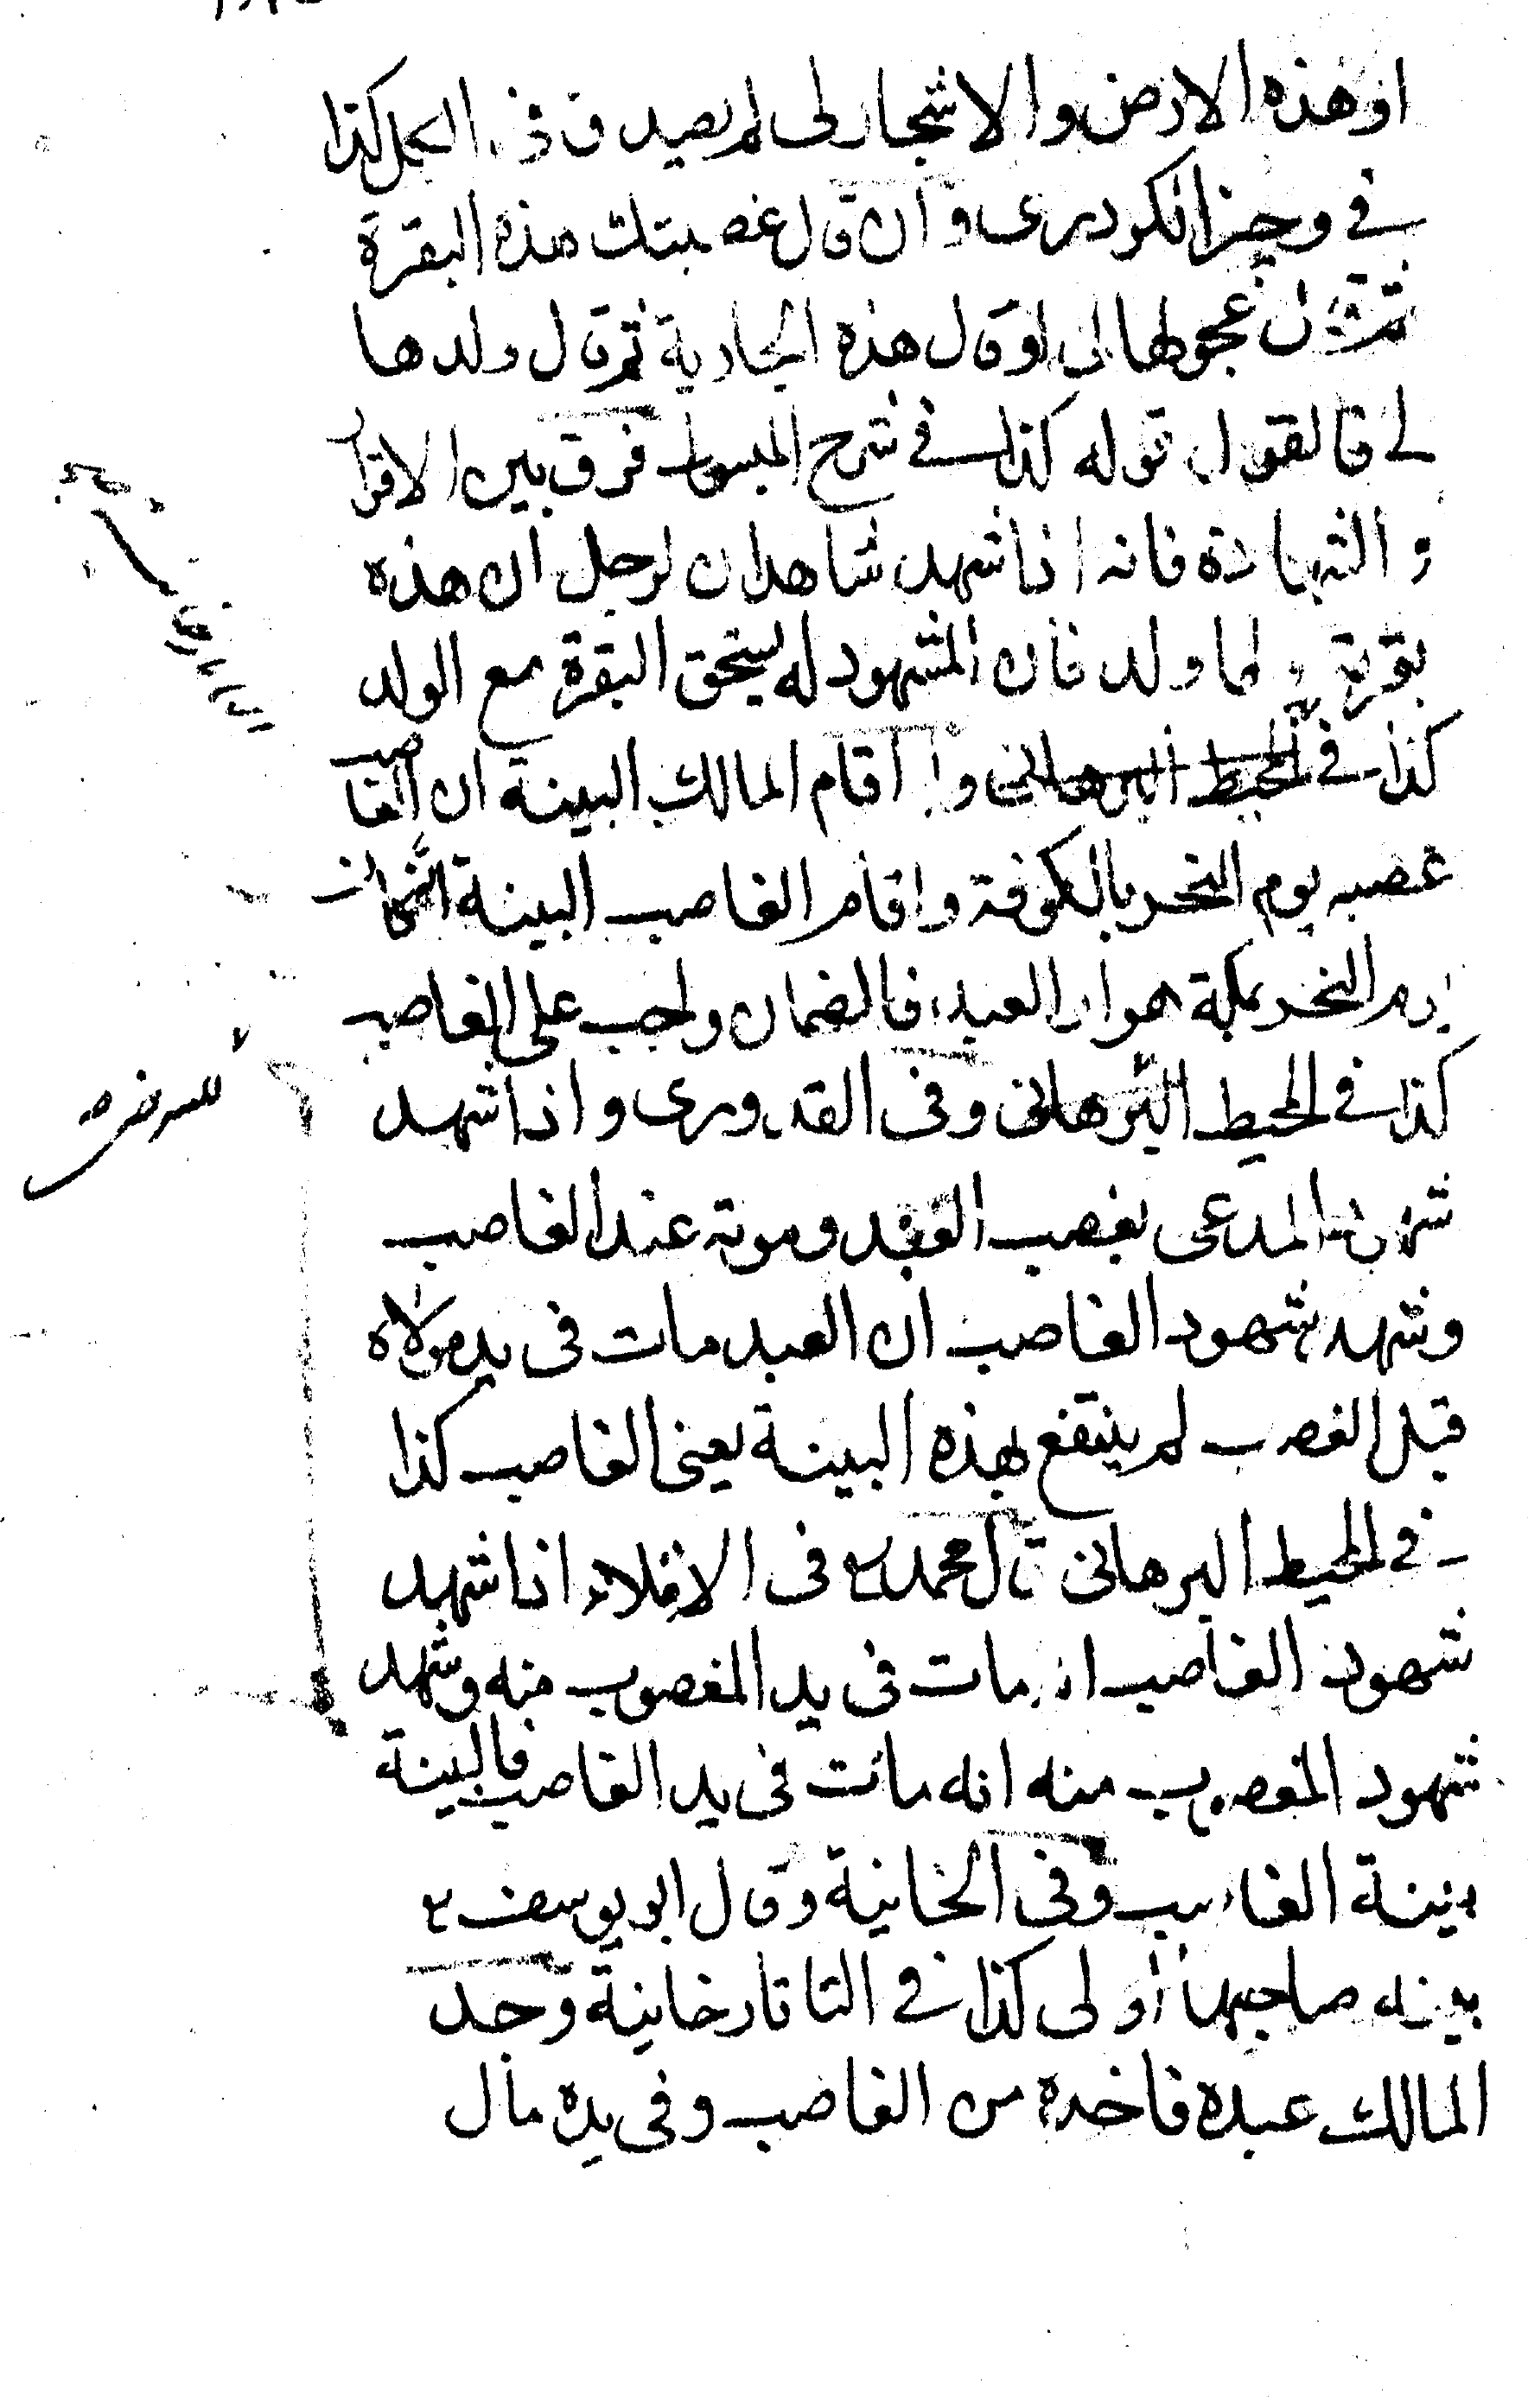 او هذه الارض والاشجار لى لم يصدق فى الكل كذا
فى وجيز الكردرى وان قال غصبتك هذه البقرة
ثم قال عجولها لى او قال هذه الجارية ثم قال ولدها
لى فالقول قوله كذا فى شرح المبسوط فرق بين الاقرار
والشهادة فانه اذا شهد شاهدان لرجل ان هذه
بقرته ولها ولد فان المشهود له يستحق البقرة مع الولد
كذا فى المحيط البرهانى واذا اقام المالك البينة ان الغاصب
غصبه يوم النحر بالكوفة واقام الغاصب البينة انه كان
يوم النحر بمكة هو او العبد فالضمان واجب على الغاصب
كذا فى المحيط البرهانى وفى القدورى واذا شهد
شهود المدعى بغصب العبد وموته عند الغاصب
وشهد شهود الغاصب ان العبد مات فى يد مولاه
قبل الغصب لم ينتفع بهذه البينة يعنى الغاصب كذا
فى المحيط البرهانى قال محمد فى الاملاء اذا شهد
شهود الغاصب انه مات فى يد المغصوب منه وشهد
شهود المغصوب منه انه مات فى يد الغاصب فالبينة
بينة الغاصب وفى الخانية وقال ابو يوسف
بينة صاحبها اولى كذا فى التاتارخانية وجد
المالك عبده فاخذه من الغاصب وفى يده مال